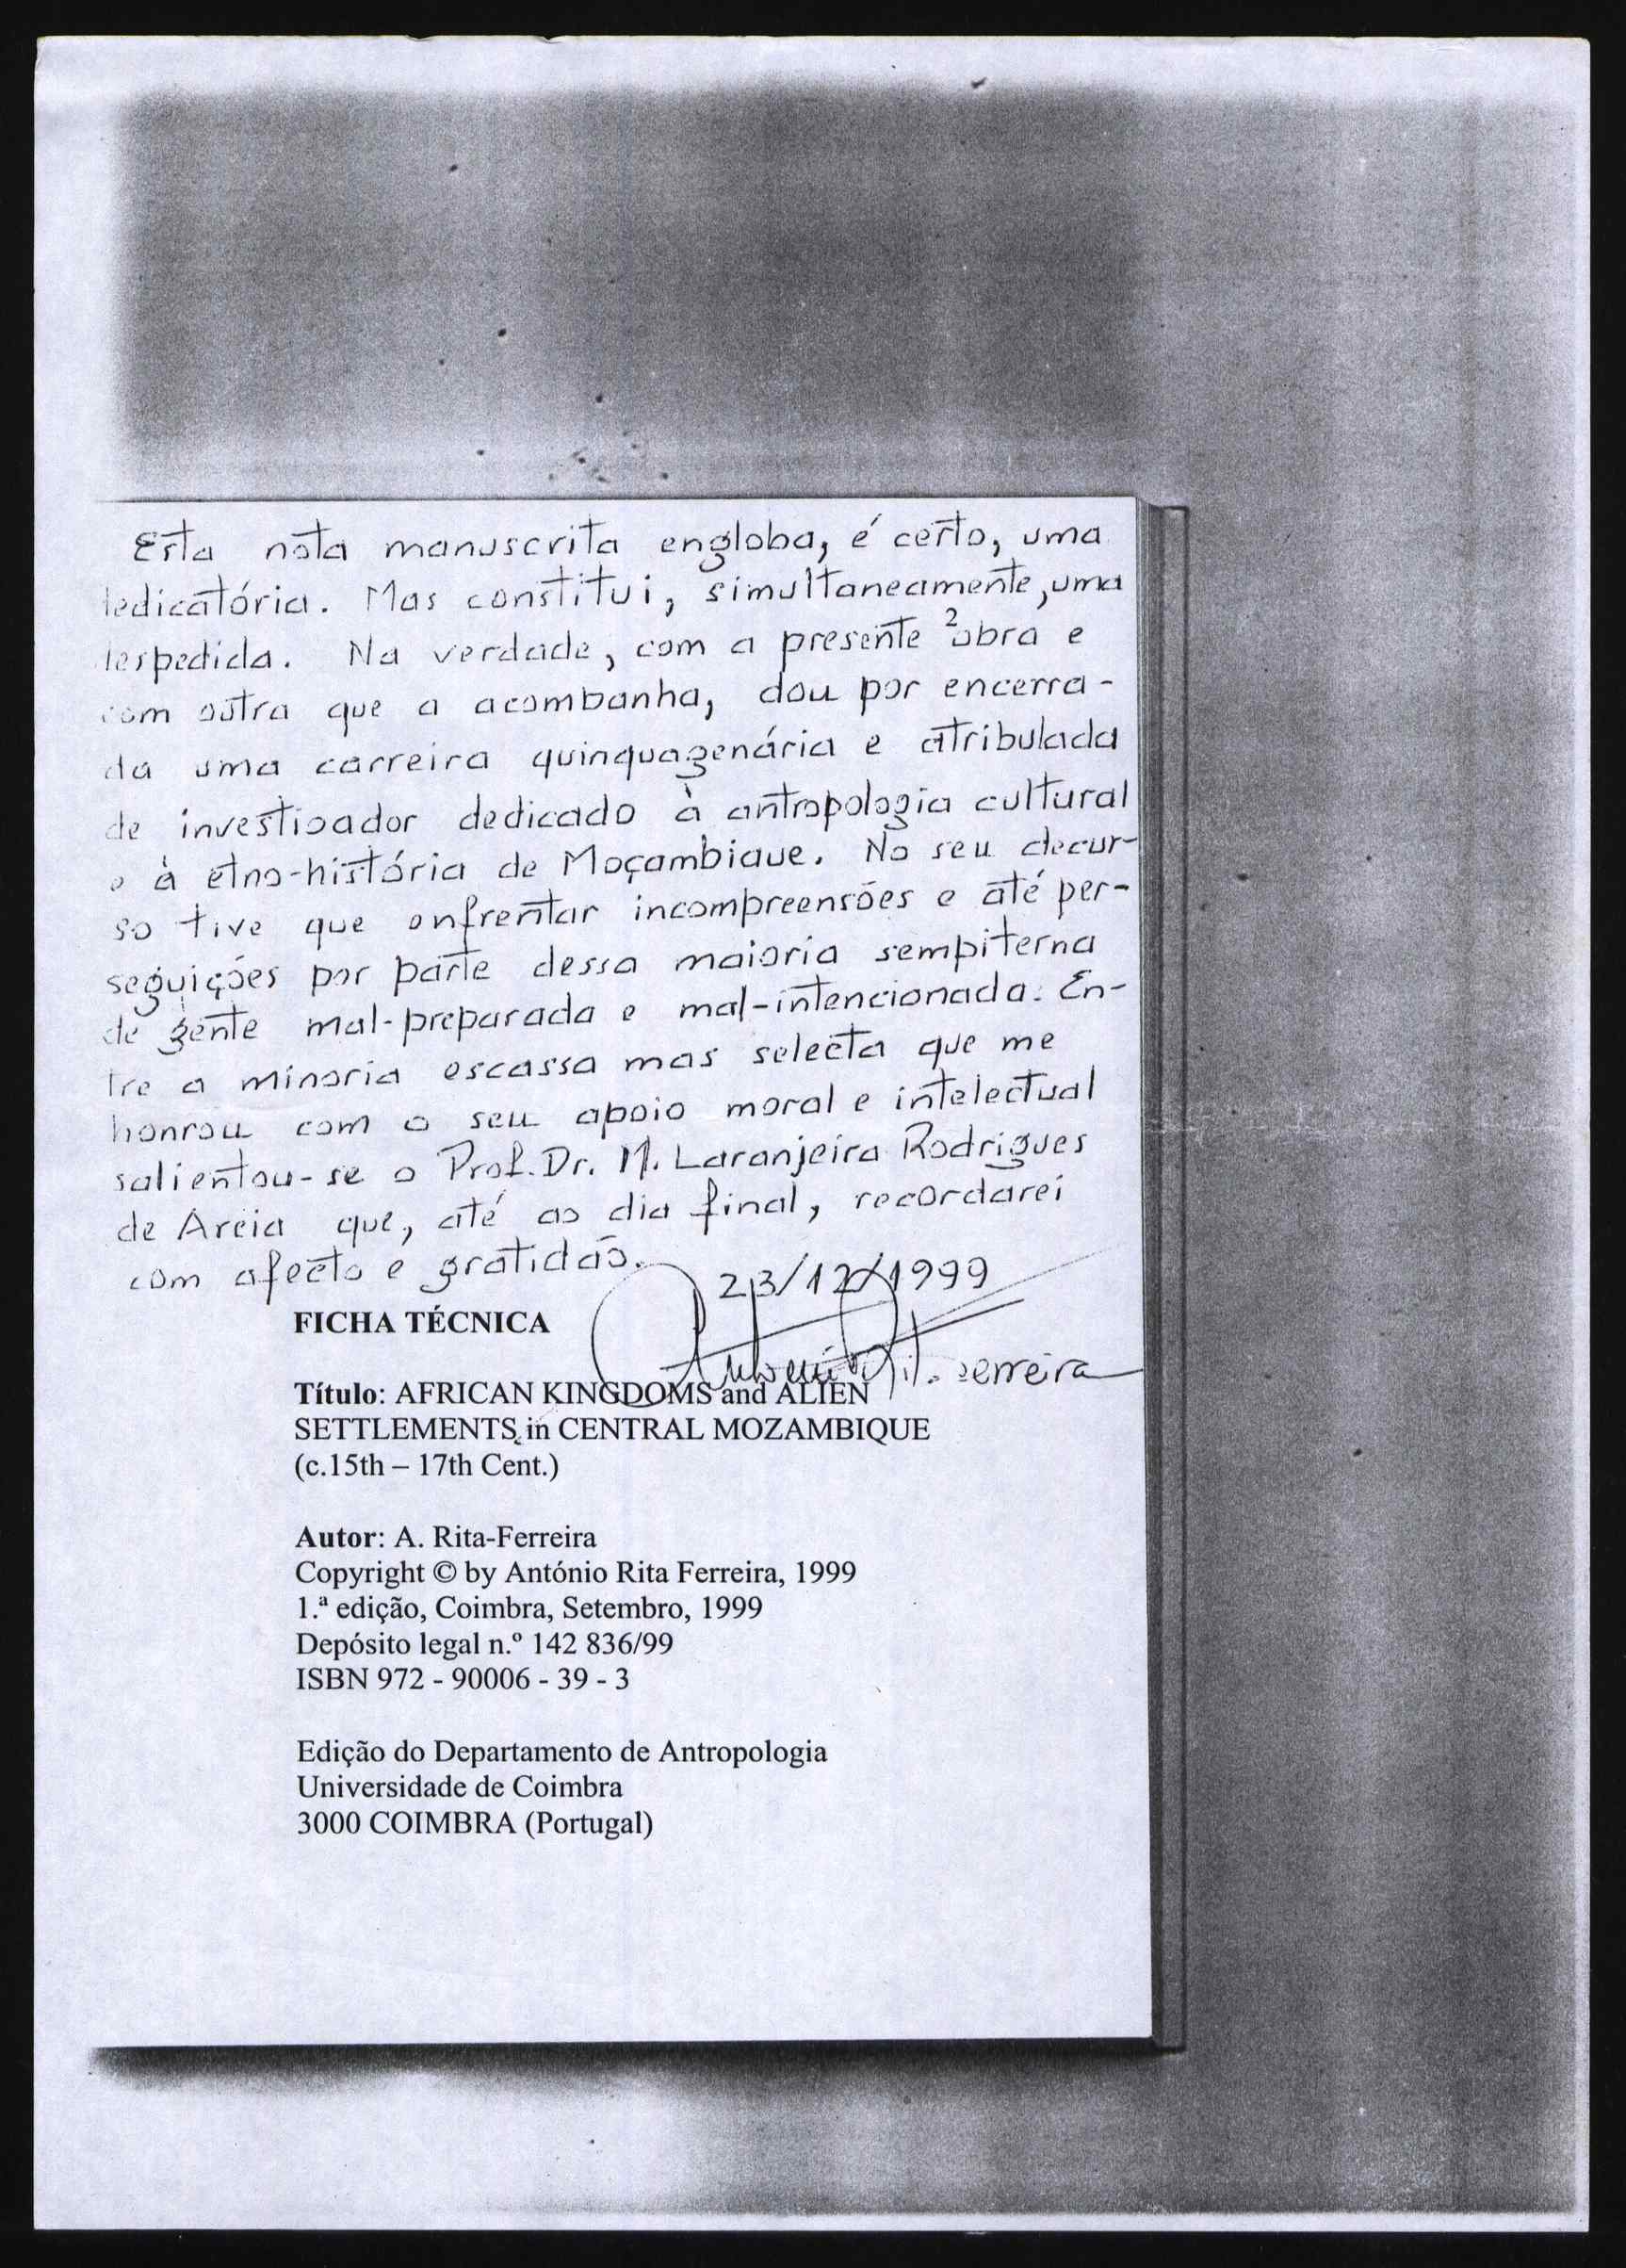 Esta nota manuscrita engloba, é certo, uma
dedicatória. Mas constitui, simultaneamente, uma
despedida. Na verdade, com a presente obra e
com outra que a acompanha, dou por encerra-
da uma carreira quinquagenária e atribulada
de investigador dedicado à antropologia cultural
e à etno-história de Moçambique. No seu decur-
so tive que enfrentar incompreensões e até per-
seguições por parte dessa maioria sempiterna
de gente mal-preparada e mal-intencionada. En-
tre a minoria escassa mas selecta que me
honrou com o seu apoio moral e intelectual
salientou-se o Prof. Dr. M. Laranjeira Rodrigues
de Areia que, até ao dia final, recordarei
com afecto e gratidão.
23/12/1999
António Rita-Ferreira
FICHA TÉCNICA
Título: AFRICAN KINGDOMS and ALIEN
SETTLEMENTS in CENTRAL MOZAMBIQUE
(c.15th – 17th Cent.)
Autor: A. Rita-Ferreira
Copyright © by António Rita Ferreira, 1999
1.ª edição, Coimbra, Setembro, 1999
Depósito legal n.º 142 836/99
ISBN 972 - 90006 - 39 - 3
Edição do Departamento de Antropologia
Universidade de Coimbra
3000 COIMBRA (Portugal)